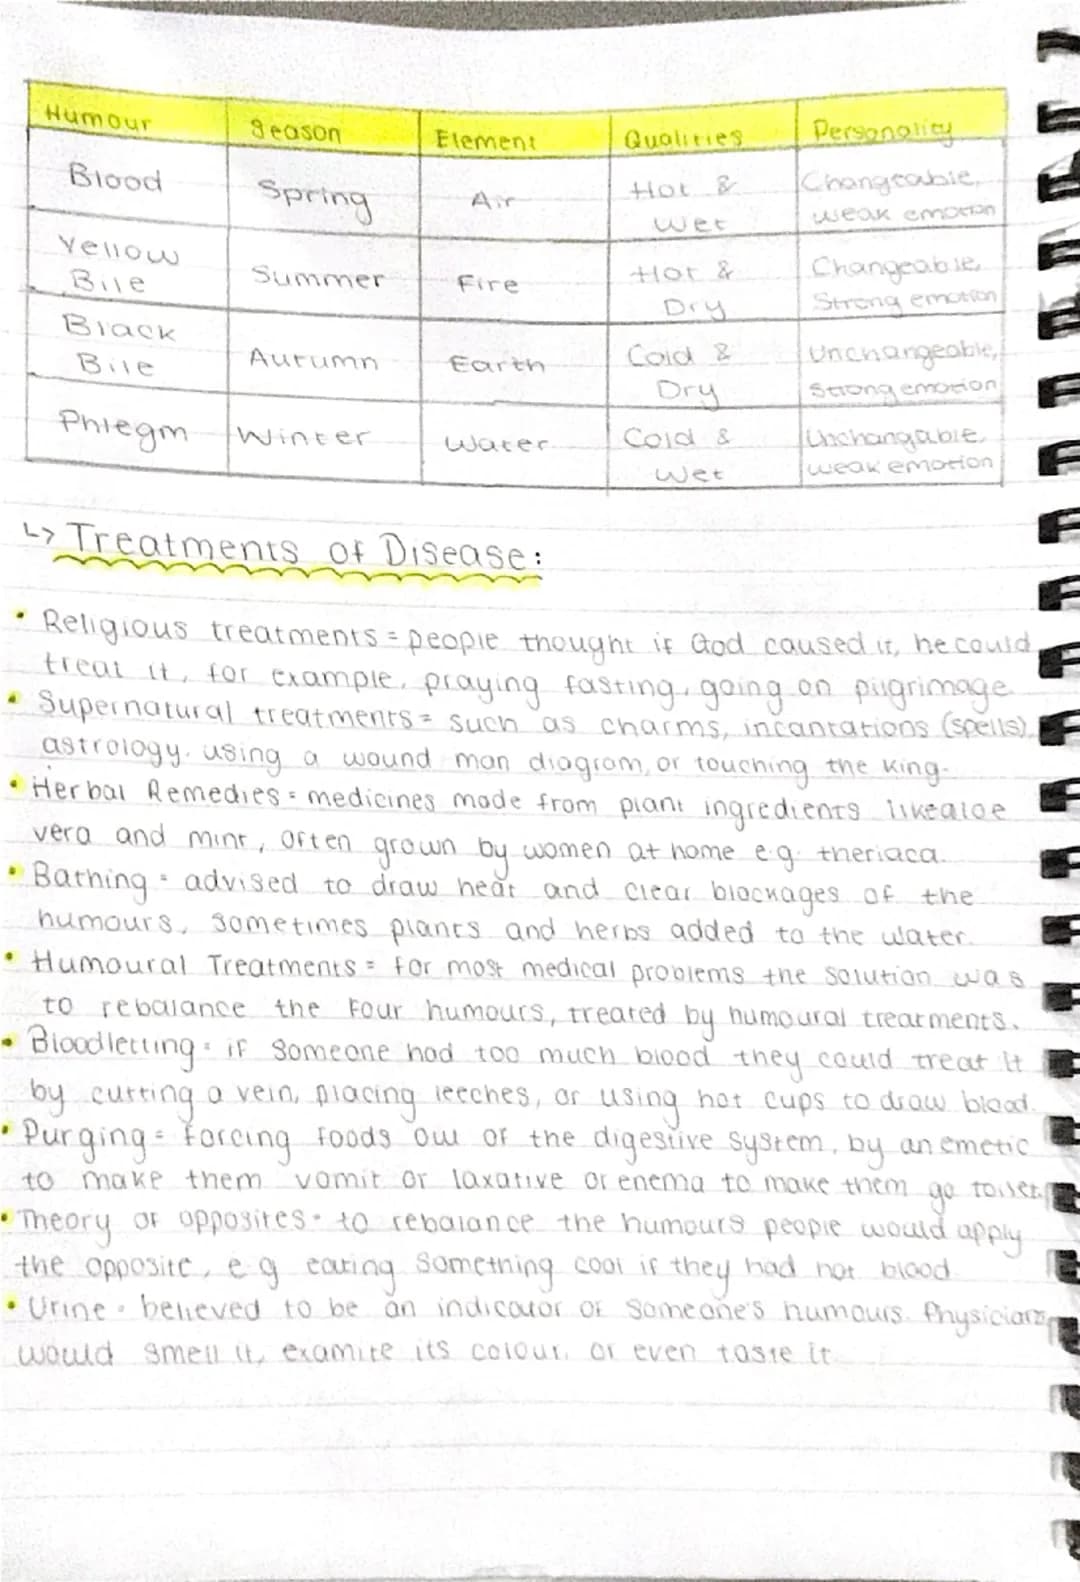 Humour Season Element Qualities Personality
Blood Spring Air Hot & Wet Changeable, weak emotion
Yellow Bile Summer Fire Hot & Dry Changeable, Strong emotion
Black Bile Autumn Earth Cold & Dry Unchangeable, Strong emotion
Phlegm Winter Water Cold & Wet Unchangable, weak emotion
↳ Treatments of Disease:
• Religious treatments = people thought if God caused it, he could
treat it, for example, praying fasting, going on pilgrimage
• Supernatural treatments = such as charms, incantations (spells),
astrology, using a wound man diagram, or touching the king.
• Herbal Remedies = medicines made from plant ingredients like aloe
vera and mint, often grown by women at home e.g. theriaca.
• Bathing = advised to draw heat and clear blockages of the
humours, sometimes plants and herbs added to the water.
• Humoural Treatments = for most medical problems the solution was
to rebalance the four humours, treated by humoural treatments.
• Bloodletting = if someone had too much blood they could treat it
by cutting a vein, placing leeches, or using hot cups to draw blood.
• Purging = forcing foods out of the digestive system, by an emetic
to make them vomit or laxative or enema to make them go toilet.
• Theory of opposites = to rebalance the humours people would apply
the opposite, e.g eating something cool if they had hot blood.
• Urine = believed to be an indicator of someone's humours. Physicians
would smell it, examine its colour, or even taste it.